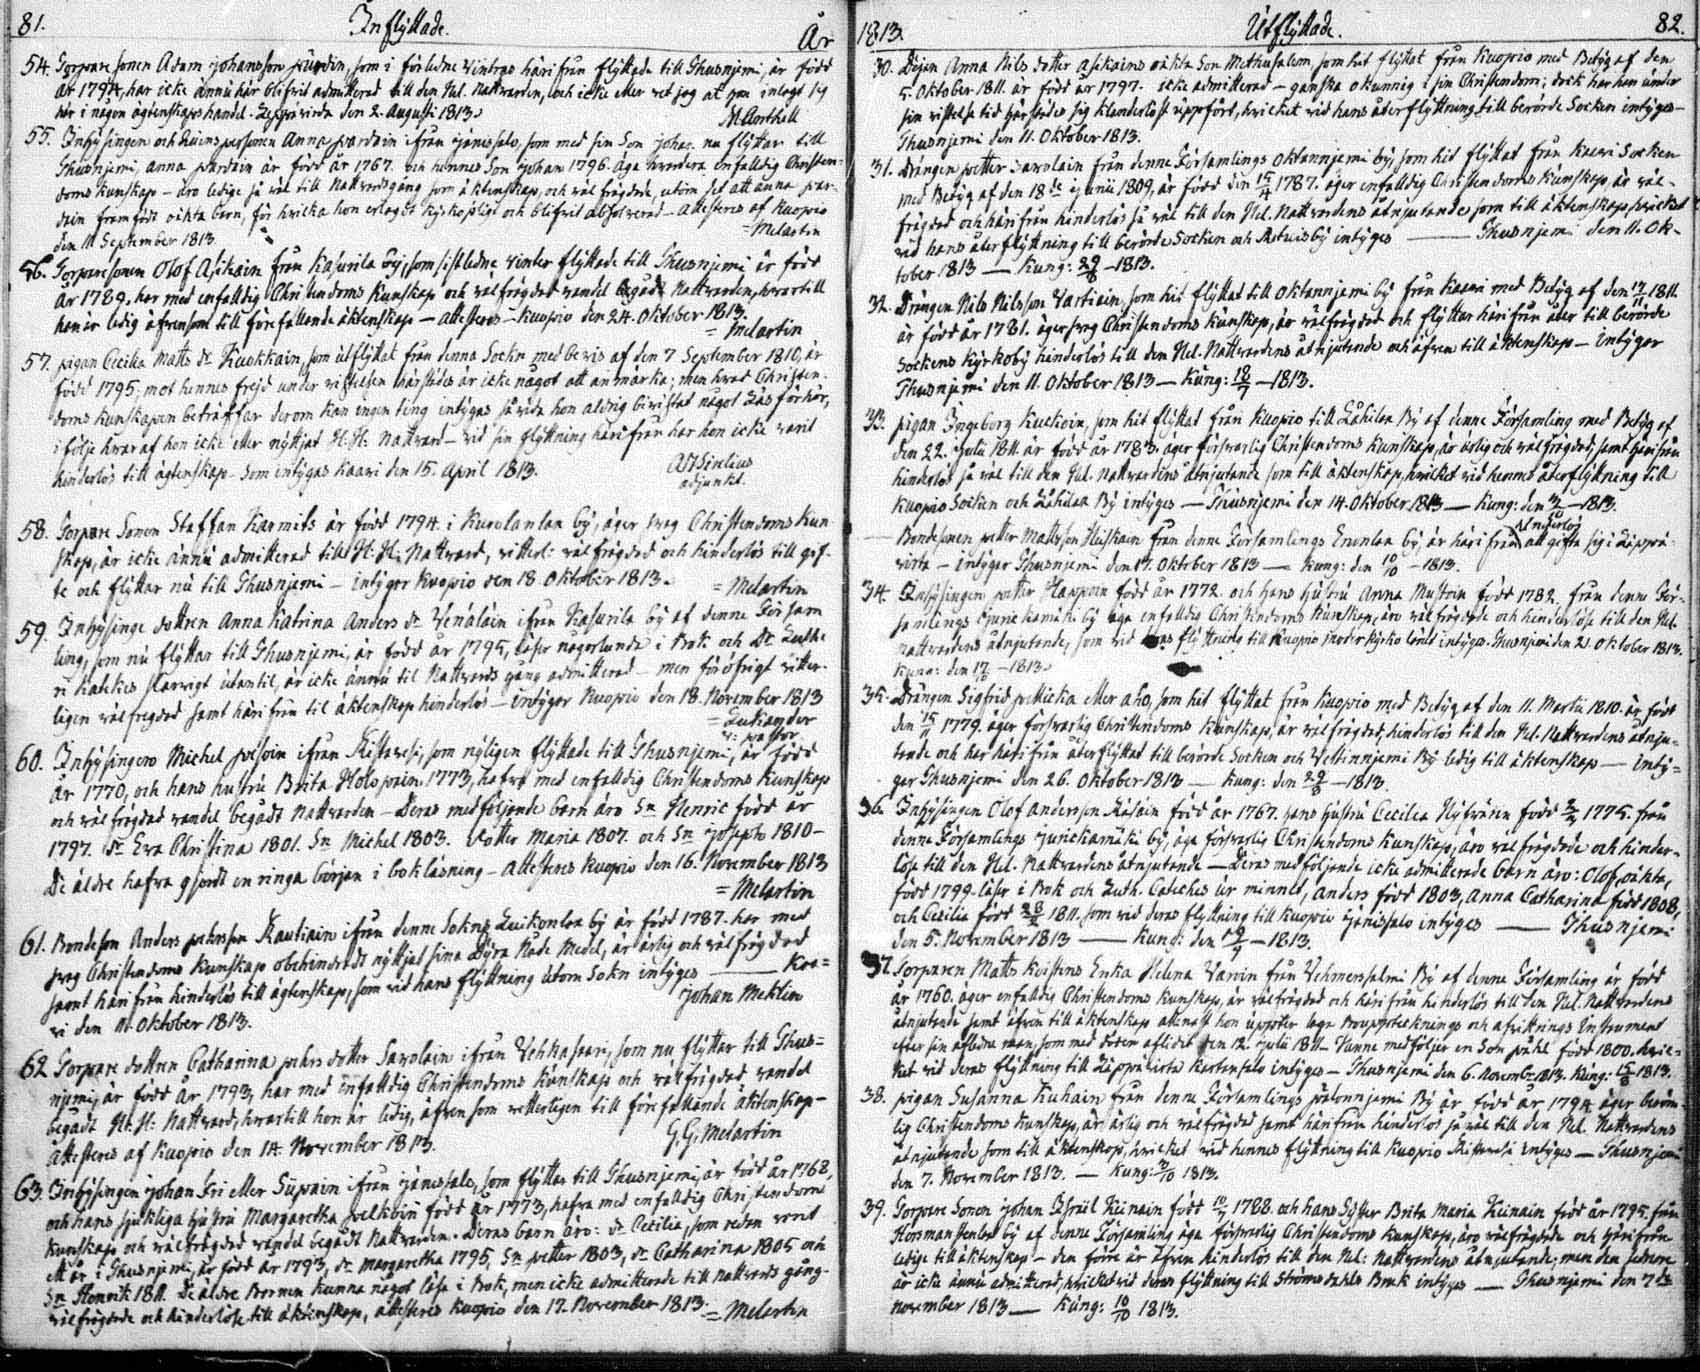 81. Inflyttade. År
54. Torpare sonen Adam Johansson, som i förledne vintras härifrån flyttade till Thusnjemi, är född
år 1794, har icke ännu här blifvit admitterad till den Hel. Nattvarden, och icke eller vet jag at han inlagt sig
här i någon ägtenskaps handel. Leppävirda den 2. Augusti 1813.
55. Inhysingen och Qvinspersonen Anna ifrån Jänissalo, som med sin Son Johan nu flyttar till
Thusnjemi, Anna är född år 1767. och hennes Son Johan 1796. Äga enfalldig Christen-
doms kunskap - äro ledige så väl till Nattvardsgång som äktenskap, och välfrägdade, utom det att Anna
framfödt oäkta barn, för hvilka hon erlagt Kyrkoplikt och blifvit absolverad - Attesteras af Kuopio
den 11 September 1813. = Melartin
56. Torparesonen Olof Asikain från Kasurila by, som sistledne vinter flyttade till Thusnjemi är född
År 1789. har med enfalldig Christendoms Kunskap och välfrägdad vandel begådt Nattvarden, hvartill
han är ledig äfvensom till förefallande äktenskap - attesteras - Kuopio den 24. Oktober 1813.
= Melartin
57. Pigan Cecilia Matts dr Kuokkain, som utflyttat från denna Sockn med bevis af den 7 September 1810, är
född 1795; mot hennes frejd under vistelsen härstädes är icke något att anmärka; men hvad Christen-
doms kunskapen beträffar derom kan ingen ting intygas så vida hon aldrig bevistat något Läsförhör,
i följe hvaraf hon icke eller nyttjat H. H. Nattvard - vid sin flyttning härifrån har hon icke varit
hinderlös till ägtenskap. Som intygas Kaavi den 15. April 1813.
adjunkt.
58. Torpare Sonen Staffan Karmits är född 1794. i Kurolanlax by, äger svag Christendoms Kun
skap, är icke ännu admitterad till H. H. Nattvard, vitterl: välfrägdad och hinderlös till gif-
te och flyttar nu till Thusnjemi - intygar Kuopio den 18 Oktober 1813. = Melartin
59. Inhysinge dottren Anna Katrina Anders dr Venäläin ifrån Kasurila by af denne Försam
ling, som nu flyttar till Thusnjemi, är född år 1795, läser någorlunda i Bok och Dr Luthe
ri katekes utantil, är icke ännu til Nattvards gång admitterad - men föröfrigt vitter-
ligen välfregdad samt härifrån til äktenskap hinderlös - intygar Kuopio den 18. November 1813
= Lukander
v: pastor
60. Inhysingen Michel ifrån Kiltaresi, som nyligen flyttade till Thusnjemi, är född
År 1770, och hans hustru Brita Holopain 1773, hafva med enfalldig Christendoms Kunskap
och välfrägdad vandel begådt Nattvarden - Deras medföljande barn äro Sn Henric född år
1797. Dr Eva Christina 1801. Sn Michel 1803. Dotter Maria 1807. och Sn Joseph 1810 -
De äldre hafva gjordt en ringa början i bokläsning - attesteres Kuopio den 16. November 1813
= Melartin
61. Bondeson Anders Pehrsson Kautiain ifrån denne Sokns by är född 1787. har med
svag Christendoms kunskap obehindradt nyttjat sina dyra Nåde Medel, är ärlig och välfrägdad
samt härifrån hinderlös till ägtenskap, som vid hans flyttning utom Sokn intyges — Kaa=
vi den 11. Oktober 1813. Johan Meklin
62 Torpare dottren Catharina Pehrs dotter Savolain ifrån Vehkasaari, som nu flyttar till Thus=
njemi, är född år 1793, har med enfalldig Christendoms Kunskap och välfrägdad vandel
begådt H: H: Nattvard, hvartill hon är ledig, äfven som vitterligen till förefallande äktenskap -
attesteres af Kuopio den 14. November 1813. G. G. Melartin
63. Inhysingen Johan Fri eller Siipain ifrån Jänissalo, som flyttar till Thusnjemi, är född år 1768,
och hans sjukliga hustru Margaretha född år 1773, hafva med enfalldig Christendoms
kunskap och välfrägdad vandel begådt Nattvarden. Deras barn äro: dr Cecilia, som redan varit
ett år i Thusnjemi, är född år 1793, dr Margaretha 1795, Sn Petter 1803, dr Catharina 1805 och
Sn Henrik 1811. De äldre barnen kunna något läsa i Bok, men icke admitterade till nattvards gång -
välfrägdade och hinderlöse till äktenskap, attesteres Kuopio den 17. November 1813. = Melartin
1813. Utflyttade. 82.
30. Pigan Anna Nils dotter Asikains oäkta Son Methusalem, som hit flyttat från Kuopio med Betyg af den
5. Oktober 1811. är född år 1797. icke admitterad - ganska okunnig i sin Christendom; dock har han under
sin vistelse tid härstädes sig klanderlöst uppfört, hvilket vid hans återflyttning till berörde Socken intyges -
Thusnjemi den 11. Oktober 1813.
31. Drängen Petter Savolain från denne Församlings Oktannjemi by, som hit flyttat från Kaavi Socken
med Betyg af den 18de Junii 1809, är född den 15/4 1787. äger enfalldig Christendoms Kunskap, är väl-
frägdad och härifrån hinderlös så väl till den Hel. Nattvardens åtnjutande, som till äktenskap, hvilket
vid hans återflyttning till berörde Socken och by intyges — Thusnjemi den 11. Ok-
tober 1813 — Kung: 29/8 - 1813.
32. Drängen Nils Nilsson Vartiain, som hit flyttat till Oktannjemi by från Kaavi med Betyg af den 17/11 1811.
är född år 1781. äger svag Christendoms Kunskap, är välfrägdad och flyttar härifrån åter till berörde
Sockens Kyrkoby hinderlös till den Hel. Nattvardens åtnjutande och äfven till äktenskap - Intygar
Thusnjemi den 11. Oktober 1813 - Kung: 18/7 - 1813.
33. Pigan Ingeborg Kuckoin, som hit flyttat från Kuopio till By af denne Församling med Betyg af
den 22. Julii 1811. är född år 1783. äger försvarlig Christendoms Kunskap, är ärlig och välfrägdad, samt härifrån
hinderlös så väl till den Hel. Nattvardens åtnjutande som till äktenskap, hvilket vid hennes återflyttning till
Kuopio Socken och By intyges - Thusnjemi den 14. Oktober 1813 - Kung: den 1813.
— Bondesonen Petter Mattsson Huskain från denne Församlings Enonlax by, är härifrån hinderlös att gifta sig i Leppä-
virta - intygar Thusnjemi den 17. Oktober 1813 — Kung: den 10/10 - 1813.
34. Inhysingen Petter Happoin född år 1772. och hans hustru Anna Mustoin född 1782. från denne För-
samlings Jurickamäki by äga enfalldig Christendoms Kunskap, äro välfrägdade och hinderlöse till den Hel.
nattvardens åtnjutande, som vid deras flyttande till Kuopio moder Kyrko bord intyges. Thusnjemi den 21 Oktober 1813.
Kung: den 17/10 - 1813.
35. Drängen Sigfrid som hit flyttat från Kuopio med Betyg af den 11. Martii 1810. är född
den 15/11 1779. äger försvarlig Christendoms Kunskap, är välfrägdad, hinderlös till den Hel. Nattvardens åtnju-
tande och har härifrån återflyttat till berörde Socken och Vettinnjemi By ledig till äktenskap — Inty-
gar Thusnjemi den 26. Oktober 1813 — Kung: den 29/8 - 1813.
36. Inhysingen Olof Andersson Räsäin född år 1767. hans hustru Cecilia Hyfvänen född 1775. från
denne Församlings Jurickamäki by, äga försvarlig Christendoms Kunskap, äro välfrägdade och hinder-
löse till den Hel. Nattvardens åtnjutande - Deras medföljande icke admitterade barn äro: Olof, oäkta,
född 1799. läser i Bok och Luth. Cateches ur minnet, Anders född 1803, Anna Catharina född 1808,
och Cecilia född 28/2 1811. som vid deras flyttning till Kuopio Jänissalo intyges — Thusnjemi
den 5. November 1813 — Kung: den 1813.
37. Torparen Matts Enka Helena Varoin från Vehmersalmi By af denne Församling är född
år 1760. äger enfalldig Christendoms Kunskap, är välfrägdad och härifrån hinderlös till den Hel. Nattvardens
åtnjutande samt äfven till äktenskap allenast hon uppviser laga Bouppteknings och afvittrings Instrument
efter sin aflidne man, som med döden aflidit den 12. Julii 1811 - Henne medföljer en Son Påhl född 1800. hvil-
ket vid deras flyttning till Leppävirta intyges - Thusnjemi den 6. Novemb: 1813. Kung: 15/8 1813.
38. Pigan Susanna Kuhain från denne Församlings By är född år 1794 äger beröm-
lig Christendoms Kunskap, är ärlig och välfrägdad samt härifrån hinderlös så väl till den Hel. Nattvardens
åtnjutande som till äktenskap, hvilket vid hennes flyttning till Kuopio intyges - Thusnjemi
den 7. November 1813. - Kung: 3/10 1813.
39. Torpare Sonen Johan Israel Kiinain född 10/7 1788. och hans Syster Brita Maria Kiinain född år 1795. från
by af denne Församling äga försvarlig Christendoms Kunskap, äro välfrägdade och härifrån
ledige till äktenskap - den förre är äfven hinderlös till den Hel: Nattvardens åtnjutande, men den sednare
är icke ännu admitterad, hvilket vid deras flyttning till Strömsdahls Bruk intyges — Thusnjemi den 7de
November 1813 — Kung: 10/10 1813.